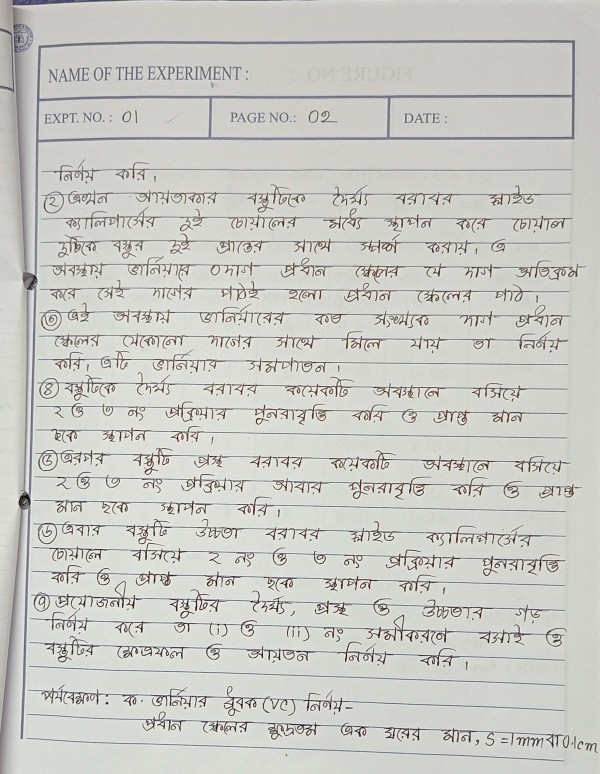 NAME OF THE EXPERIMENT :
EXPT. NO. : 01 PAGE NO.: 02 DATE :
নির্ণয় করি।
(২) এখন আয়তাকার বস্তুটিকে দৈর্ঘ্য বরাবর স্লাইড
ক্যালিপার্সের দুই চোয়ালের মধ্যে স্থাপন করে চোয়াল
দুটিকে বস্তুর দুই প্রান্তের সাথে স্পর্শ করায়। এ
অবস্থায় ভার্নিয়ারে 0 দাগ প্রধান স্কেলের যে দাগ অতিক্রম
করে সেই দাগের পাঠই হলো প্রধান স্কেলের পাঠ।
(৩) এই অবস্থায় ভার্নিয়ারের কত সংখ্যক দাগ প্রধান
স্কেলের যেকোনো দাগের সাথে মিলে যায় তা নির্ণয়
করি, এটি ভার্নিয়ার সমপাতন।
(৪) বস্তুটিকে দৈর্ঘ্য বরাবর কয়েকটি অবস্থানে বসিয়ে
২ ও ৩ নং প্রক্রিয়ার পুনরাবৃত্তি করি ও প্রাপ্ত মান
ছকে স্থাপন করি।
(৫) এরপর বস্তুটি প্রস্থ বরাবর কয়েকটি অবস্থানে বসিয়ে
২ ও ৩ নং প্রক্রিয়ার আবার পুনরাবৃত্তি করি ও প্রাপ্ত
মান ছকে স্থাপন করি।
(৬) এবার বস্তুটি উচ্চতা বরাবর স্লাইড ক্যালিপার্সের
চোয়ালে বসিয়ে ২ নং ও ৩ নং প্রক্রিয়ার পুনরাবৃত্তি
করি ও প্রাপ্ত মান ছকে স্থাপন করি।
(৭) প্রয়োজনীয় বস্তুটির দৈর্ঘ্য, প্রস্থ ও উচ্চতার গড়
নির্ণয় করে তা (i) ও (ii) নং সমীকরণে বসাই ও
বস্তুটির ক্ষেত্রফল ও আয়তন নির্ণয় করি।
পর্যবেক্ষণ: ক. ভার্নিয়ার ধ্রুবক (VC) নির্ণয়-
প্রধান স্কেলের ক্ষুদ্রতম এক ঘরের মান, S = 1mm বা 0.1cm